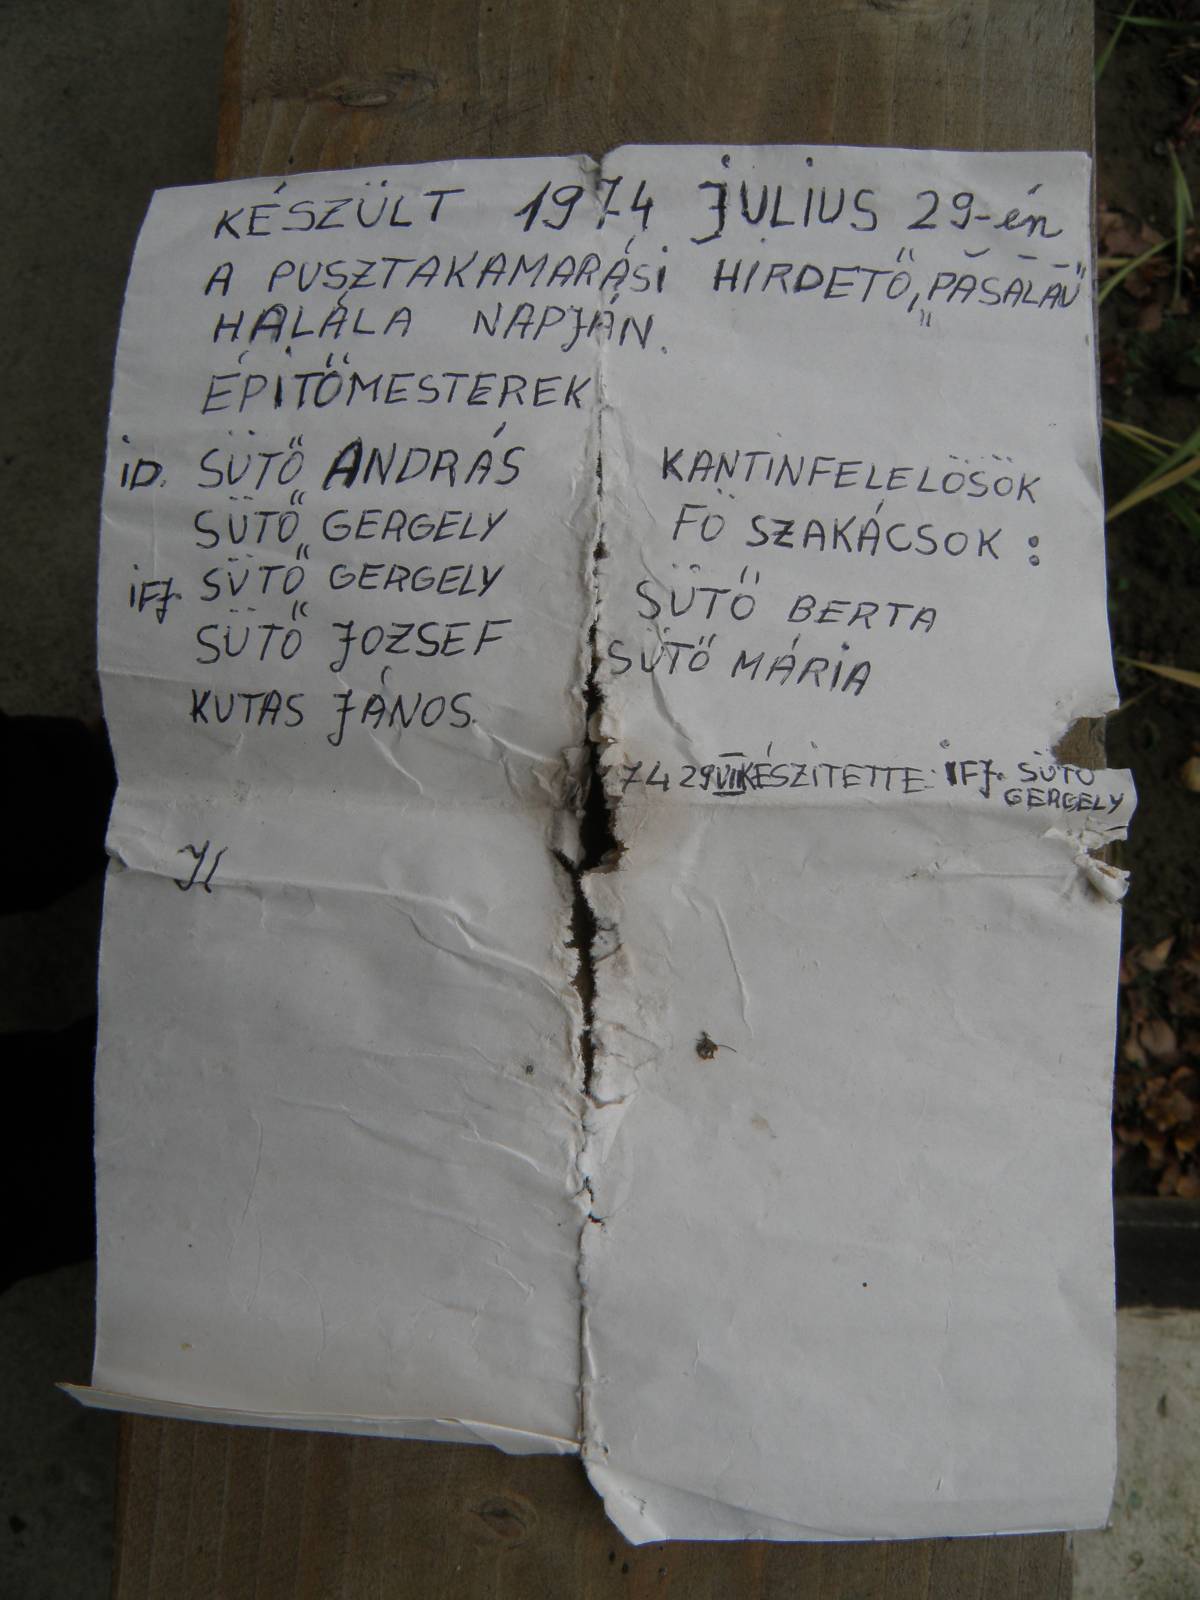 KÉSZÜLT 1974 JULIUS 29-én
A PUSZTAKAMARÁSi HIRDETŐ, „PASALĂU"
HALÁLA NAPJÁN.
ÉPITŐMESTEREK
iD. SÜTŐ ANDRÁS
SÜTŐ GERGELY
iFJ. SÜTŐ GERGELY
SÜTŐ JOZSEF
KUTAS JÁNOS.
KANTINFELELÖSÖK
FÖ SZAKÁCSOK :
SÜTŐ BERTA
SÜTŐ MÁRiA
74 29 VII KÉSZiTETTE: iFJ. SÜTO
GERGELY